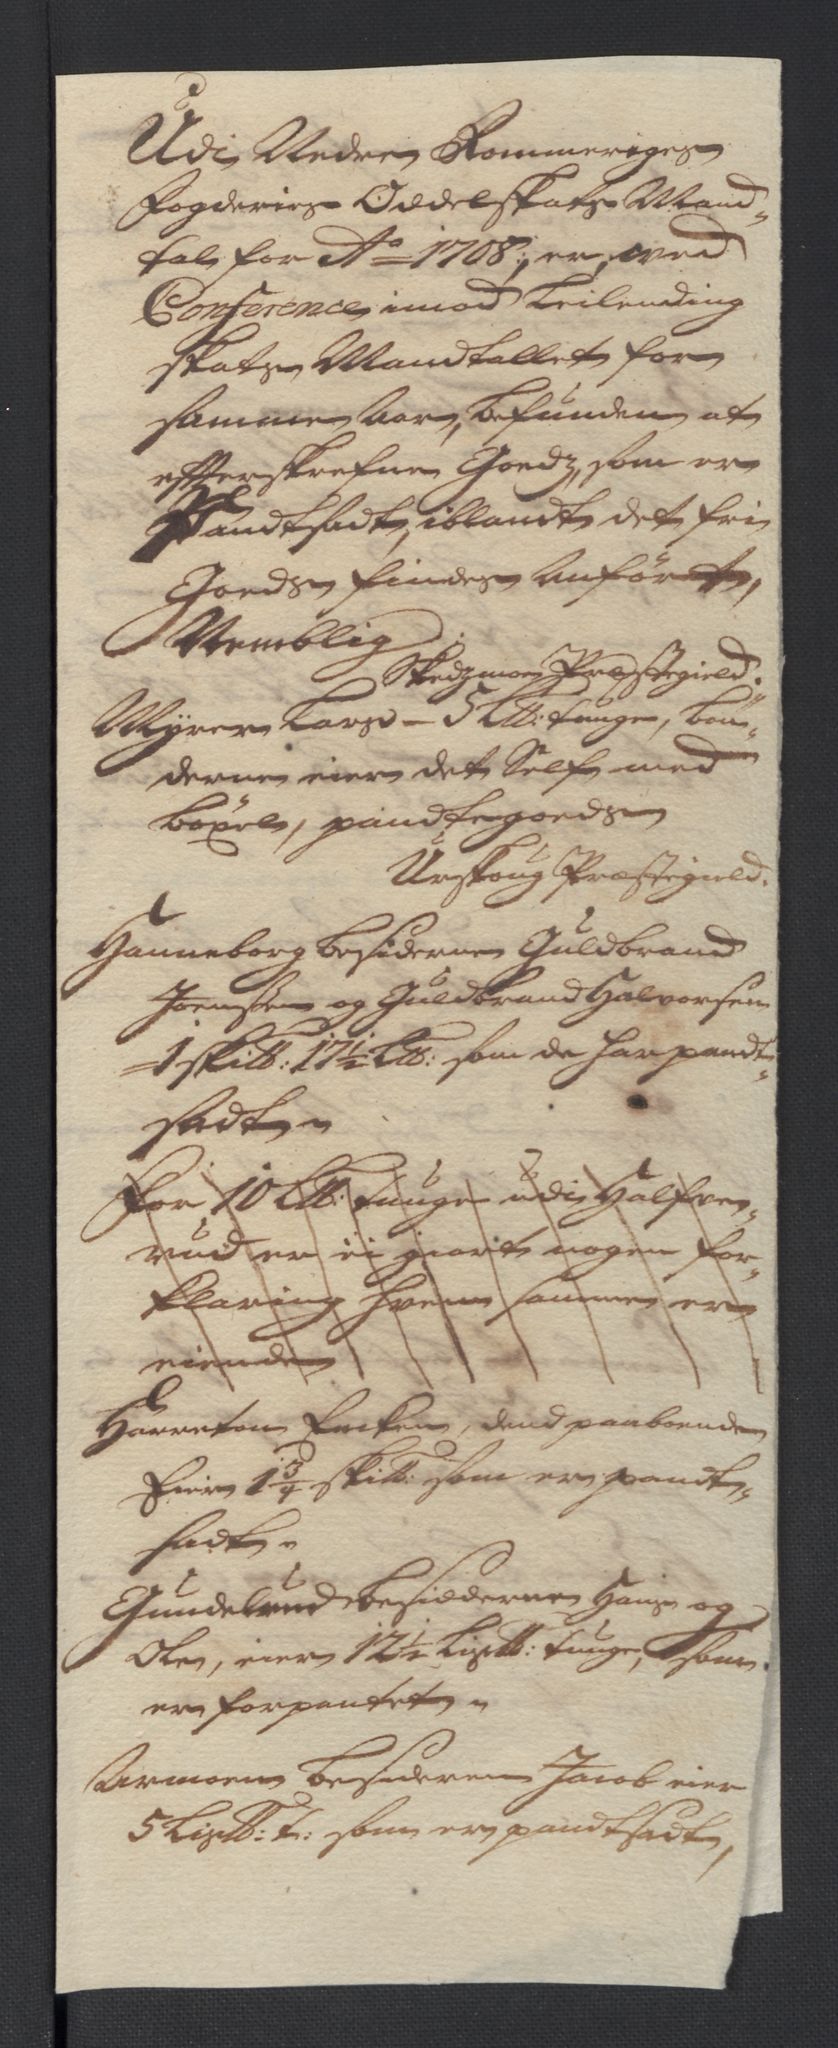 Udi Nedre Rommeriges
fogderies Oddelskats Mand-
tal for Ao 1708, er, ved
Conference imod Leilending
skats Mandtallet for
samme Aar, befunden at
efterskrefne Goedz, som er
Pandtsadt, iblandt det frie
Goeds findes anført,
Nemblig:
Skedzmoe Præstegield.
Myrer Lars - 5 L℔: tunge, bon-
derne eier det Self med
boxel, pandtegoeds
Urskoug Præstegield.
Hanneborg besidderne Guldbrand
Joensen og Guldbrand Halvorsen
1 skil℔: 17½ L℔: som de har pandt-
sadt
For 10 L℔: tunge udi Halfve-
rud er ei giort nogen for-
klaring hvem samme er
eiende
Harreton Encken, dend paaboende
Eier 1¾ skil℔: som er pandt-
sadt
Gundelrud besidderne Hans og
Ole, eier 12½ Lis℔: tunge, som
er forpantet
Armoen besidderen Jacob eier
5 Lis℔: t: som er pandtsadt,